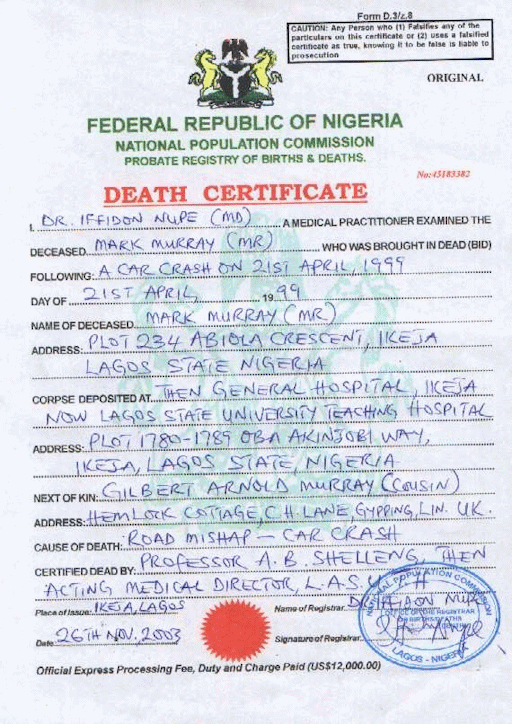 Form D.3/z.8
CAUTION: Any Person who (1) Falsifies any of the
particulars on this certificate or (2) uses a falsified
certificate as true, knowing it to be false is liable to
prosecution
ORIGINAL
FEDERAL REPUBLIC OF NIGERIA
NATIONAL POPULATION COMMISSION
PROBATE REGISTRY OF BIRTHS & DEATHS.
No:45183382
DEATH CERTIFICATE
I, DR. IFFIDON NUPE (MD) A MEDICAL PRACTITIONER EXAMINED THE
DECEASED MARK MURRAY (MR) WHO WAS BROUGHT IN DEAD (BID)
FOLLOWING: A CAR CRASH ON 21ST APRIL, 1999
DAY OF 21ST APRIL, 1999
NAME OF DECEASED MARK MURRAY (MR)
ADDRESS: PLOT 234 ABIOLA CRESCENT, IKEJA
LAGOS STATE NIGERIA
CORPSE DEPOSITED AT THEN GENERAL HOSPITAL, IKEJA
NOW LAGOS STATE UNIVERSITY TEACHING HOSPITAL
ADDRESS: PLOT 1780-1789 OBA AKINJOBI WAY,
IKEJA, LAGOS STATE, NIGERIA
NEXT OF KIN: GILBERT ARNOLD MURRAY (COUSIN)
ADDRESS: HEMLORK COTTAGE, C.H. LANE, GYPPING, LIN. UK.
CAUSE OF DEATH: ROAD MISHAP - CAR CRASH
CERTIFIED DEAD BY: PROFESSOR A. B. SHELLENG, THEN
ACTING MEDICAL DIRECTOR, L.A.S.U.T.H
Place of Issue: IKEJA, LAGOS
Name of Registrar: DR. IFFIDON NUPE
Date: 26TH NOV, 2003
Signature of Registrar:
NATIONAL POPULATION COMMISSION
OFFICE OF THE REGISTRAR
OF BIRTHS/DEATHS
LAGOS - NIGERIA
Official Express Processing Fee, Duty and Charge Paid (US$12,000.00)